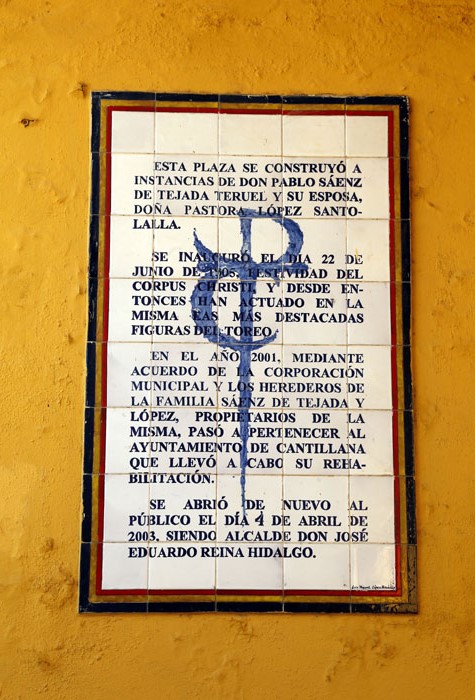 ESTA PLAZA SE CONSTRUYÓ A
INSTANCIAS DE DON PABLO SÁENZ
DE TEJADA TERUEL Y SU ESPOSA,
DOÑA PASTORA LÓPEZ SANTO-
LALLA.
SE INAUGURÓ EL DIA 22 DE
JUNIO DE 1905, FESTIVIDAD DEL
CORPUS CHRISTI, Y DESDE EN-
TONCES HAN ACTUADO EN LA
MISMA LAS MÁS DESTACADAS
FIGURAS DEL TOREO.
EN EL AÑO 2001, MEDIANTE
ACUERDO DE LA CORPORACIÓN
MUNICIPAL Y LOS HEREDEROS DE
LA FAMILIA SÁENZ DE TEJADA Y
LÓPEZ, PROPIETARIOS DE LA
MISMA, PASÓ A PERTENECER AL
AYUNTAMIENTO DE CANTILLANA
QUE LLEVÓ A CABO SU REHA-
BILITACIÓN.
SE ABRIÓ DE NUEVO AL
PÚBLICO EL DÍA 4 DE ABRIL DE
2003, SIENDO ALCALDE DON JOSÉ
EDUARDO REINA HIDALGO.